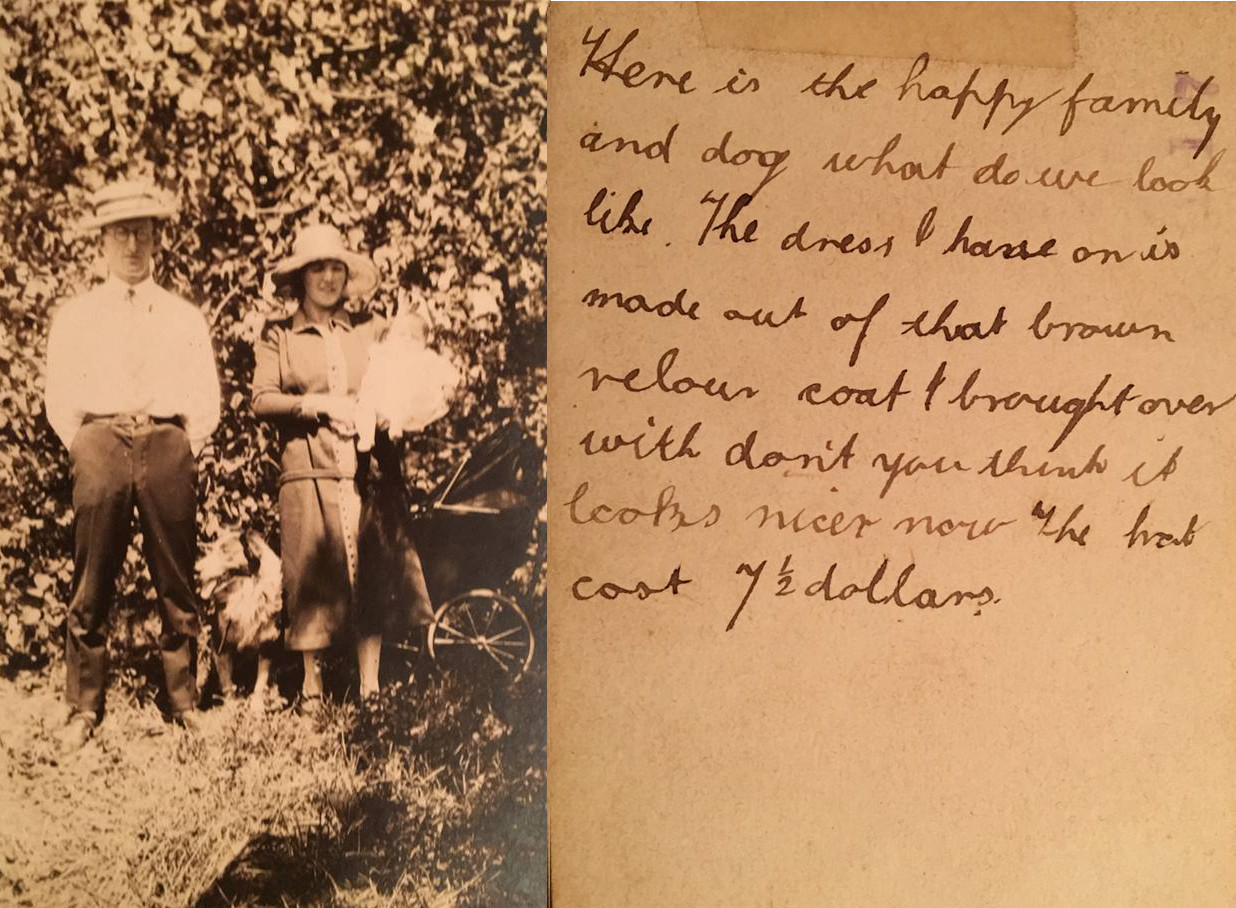 Here is the happy family
and dog what do we look
like. The dress I have on is
made out of that brown
velour coat I brought over
with don't you think it
looks nicer now The hat
cost 7½ dollars.